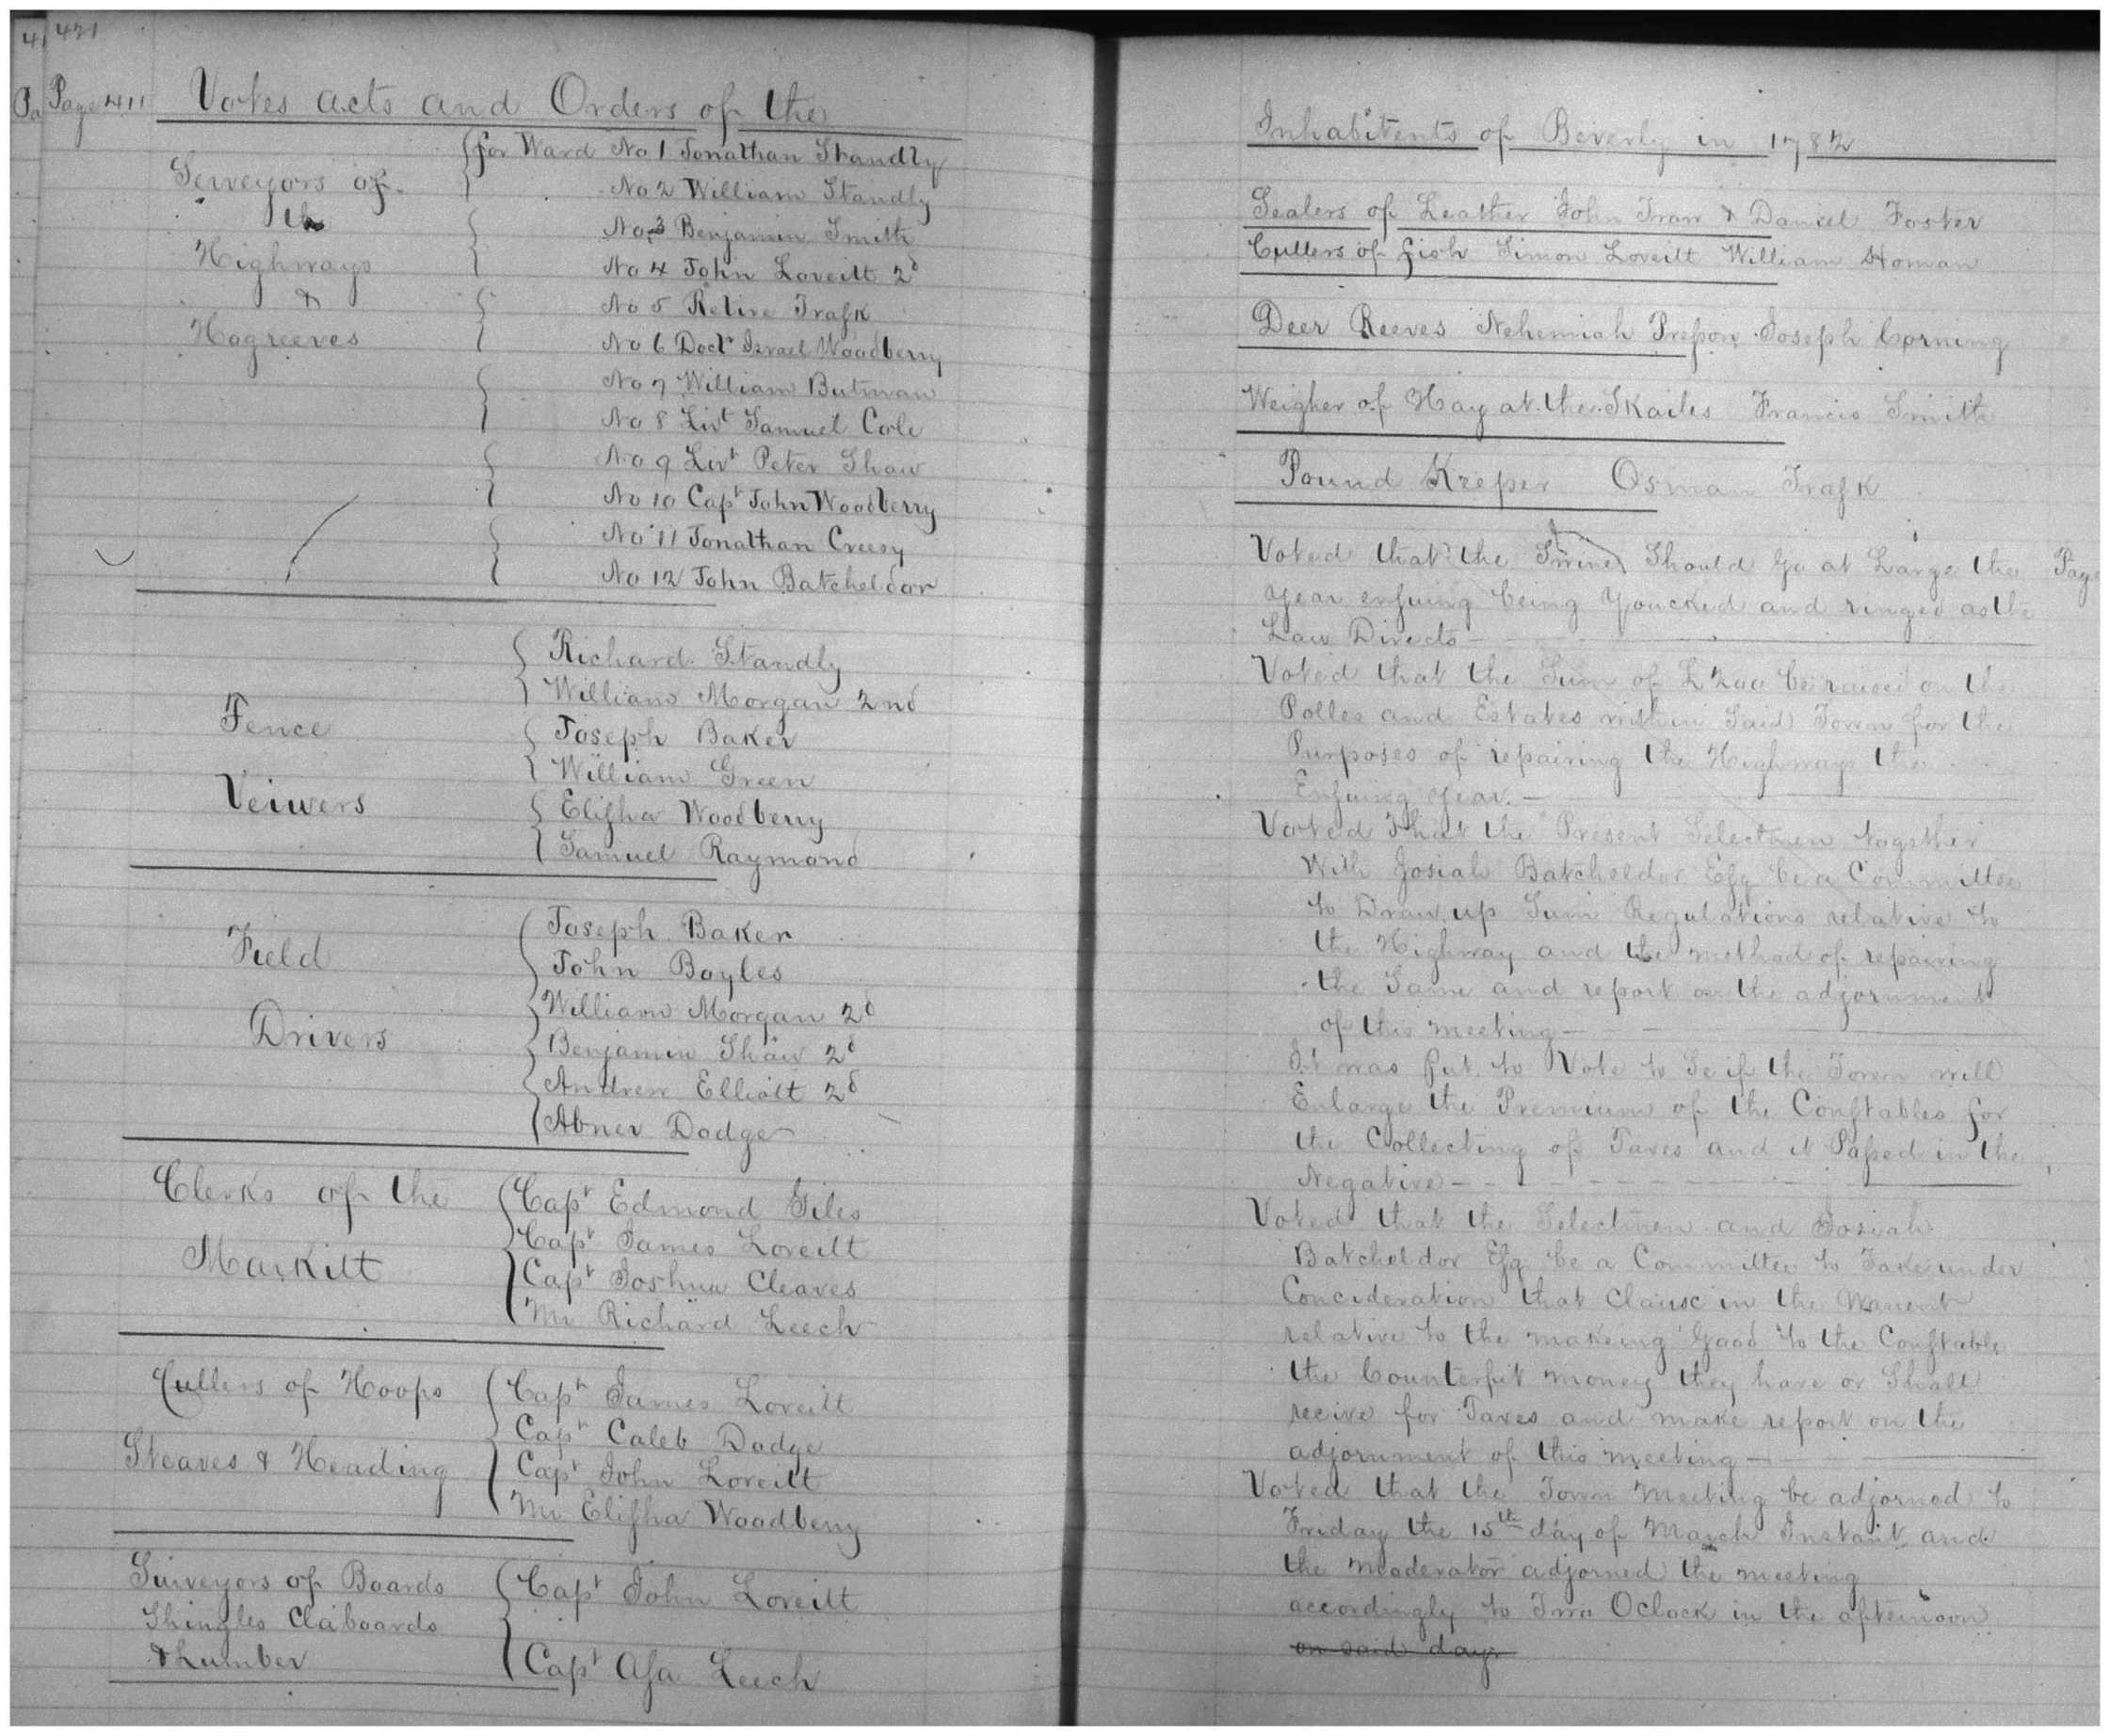 4 421
Pa Page 411 Votes acts and Orders of the
Serveyors of
the
Highways
&
Hogreeves
for Ward No 1 Jonathan Standly
No 2 William Standly
No 3 Benjamin Smith
No 4 John Loveitt 2d
No 5 Retire Trask
No 6 Doct Israel Woodberry
No 7 William Butman
No 8 Livt Samuel Cole
No 9 Livt Peter Shaw
No 10 Capt John Woodberry
No 11 Jonathan Creesy
No 12 John Batcheldor
Fence
Veiwers
Richard Standly
William Morgan 2nd
Joseph Baker
William Green
Elisha Woodberry
Samuel Raymond
Field
Drivers
Joseph Baker
John Bayles
William Morgan 2d
Benjamin Shaw 2d
Andrew Elliott 2d
Abner Dodge
Clerks of the
Markitt
Capt Edmond Giles
Capt James Loveitt
Capt Joshua Cleaves
Mr Richard Leech
Cullers of Hoops
Steaves & Heading
Capt James Loveitt
Capt Caleb Dodge
Capt John Loveitt
Mr Elisha Woodberry
Surveyors of Boards
Shingles Claboards
& Lumber
Capt John Loveitt
Capt Asa Leech
Inhabitents of Beverly in 1782
Sealers of Leather John Traw & Daniel Foster
Cullers of fish Simon Loveitt William Homan
Deer Reeves Nehemiah Preson Joseph Corning
Weigher of Hay at the Skailes Francis Smith
Pound Keeper Osman Trask
Voted that the Swine Should Go at Large the Page
year ensuing being Youcked and ringed as the
Law Directs
Voted that the Sum of £200 be raised on the
Polles and Estates within Said Town for the
Purposes of repairing the Highways the
Ensuing year.
Voted that the Present Selectmen togather
With Josiah Batcheldor Esq be a Committee
to Draw up Sum Regulations relative to
the Highway and the method of repairing
the Same and report on the adjornment
of this meeting
It was put to Vote to Se if the Town will
Enlarge the Premium of the Constables for
the Collecting of Taxes and it Passed in the
Negative
Voted that the Selectmen and Josiah
Batcheldor Esq be a Committee to Take under
Concideration that Clause in the Warrent
relative to the makeing Good to the Constable
the Counterfit money they have or Shall
recive for Taxes and make report on the
adjornment of this meeting
Voted that the Town Meeting be adjorned to
Friday the 15th day of March Instant and
the moderator adjorned the meeting
accordingly to Two Oclock in the afternoon
on said day